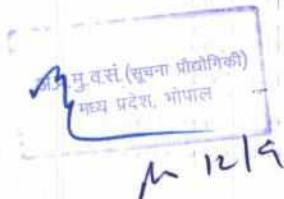 मु.व.सं. (सूचना प्रौद्योगिकी)
मध्य प्रदेश, भोपाल
12/9